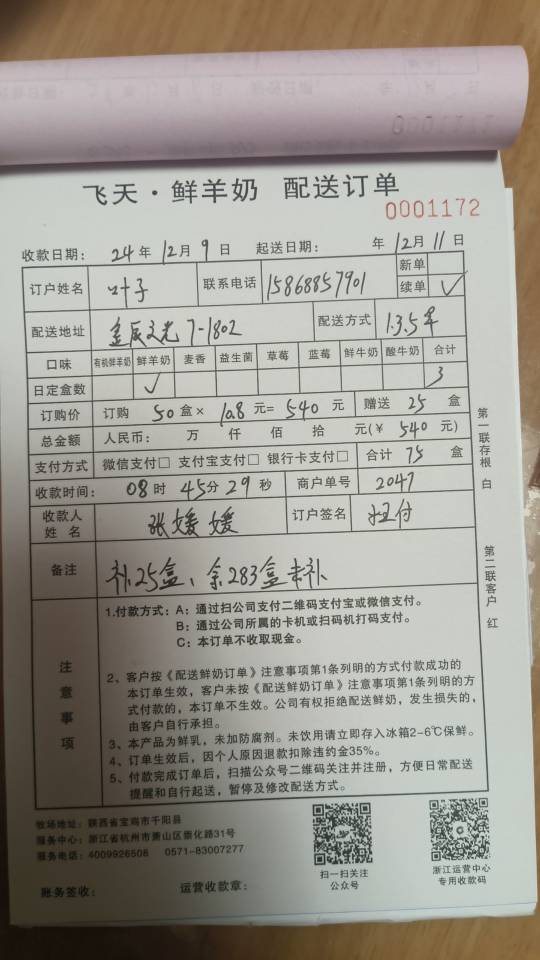 飞天·鲜羊奶 配送订单
0001172
收款日期： 24年 12月 9日 起送日期： 年 12月 11日
订户姓名 叶子 联系电话 15868857901 新单
续单 ✓
配送地址 金辰之光 7-1802 配送方式 1.3.5单
口味 有机鲜羊奶 鲜羊奶 麦香 益生菌 草莓 蓝莓 鲜牛奶 酸牛奶 合计
日定盒数 ✓ 3
订购价 订购 50 盒× 10.8 元= 540 元 赠送 25 盒
总金额 人民币： 万 仟 佰 拾 元(￥ 540 元)
支付方式 微信支付□ 支付宝支付□ 银行卡支付□ 合计 75 盒
收款时间： 08时 45分 29秒 商户单号 2047
收款人姓名 张媛媛 订户签名
备注 补25盒、余283盒未补
注意事项
1.付款方式：A：通过扫公司支付二维码支付宝或微信支付。
B：通过公司所属的卡机或扫码机打码支付。
C：本订单不收取现金。
2、客户按《配送鲜奶订单》注意事项第1条列明的方式付款成功的
本订单生效，客户未按《配送鲜奶订单》注意事项第1条列明的方
式付款的，本订单不生效。公司有权拒绝配送鲜奶，发生损失的，
由客户自行承担。
3、本产品为鲜乳，未加防腐剂。未饮用请立即存入冰箱2-6℃保鲜。
4、订单生效后，因个人原因退款扣除违约金35%。
5、付款完成订单后，扫描公众号二维码关注并注册，方便日常配送
提醒和自行起送，暂停及修改配送方式。
第一联存根 白
第二联客户 红
牧场地址：陕西省宝鸡市千阳县
服务中心：浙江省杭州市萧山区崇化路31号
服务电话：4009926508 0571-83007277
扫一扫关注
公众号
浙江运营中心
专用收款码
账务签收： 运营收款章：